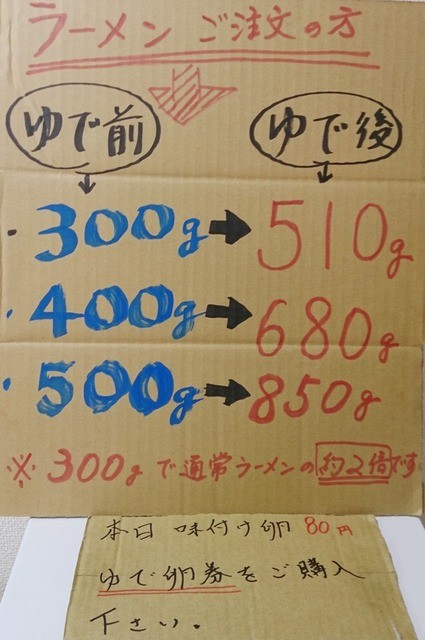 ラーメン ご注文の方
ゆで前 ゆで後
・300g→510g
・400g→680g
・500g→850g
※300gで通常ラーメンの約2倍です
本日 味付け卵 80円
ゆで卵券をご購入
下さい。